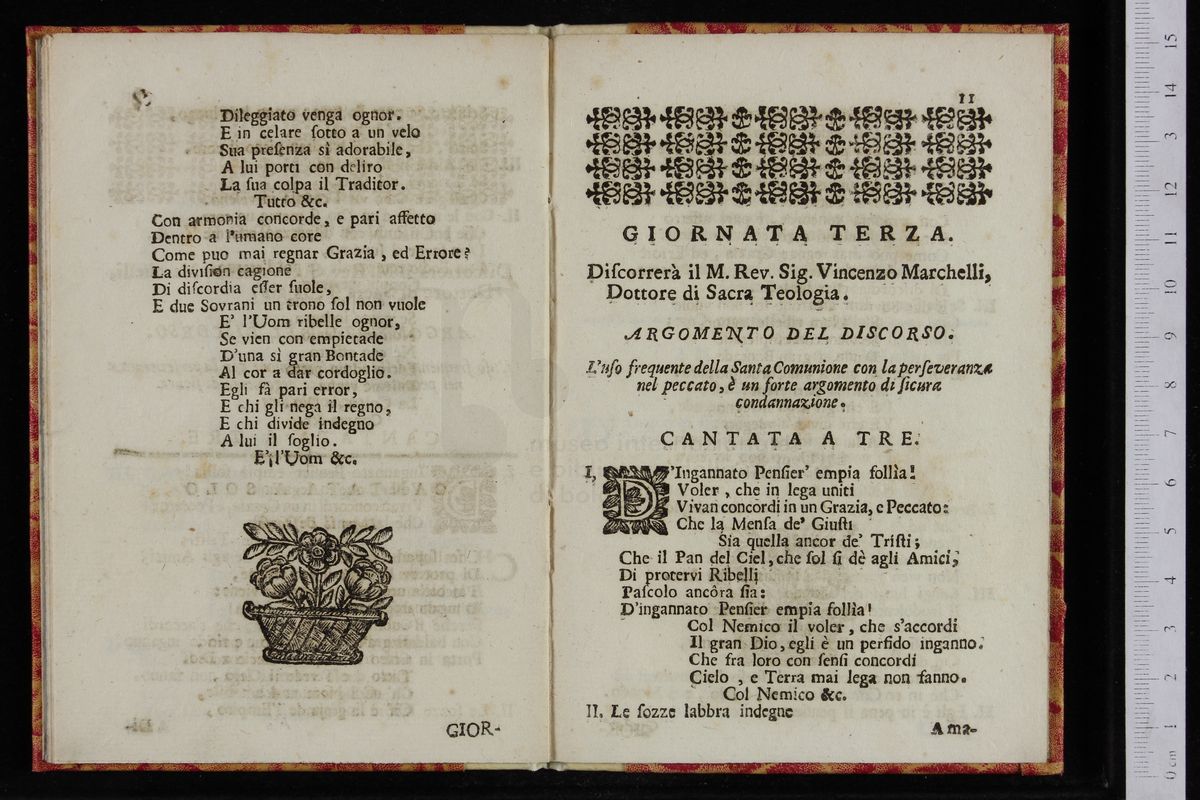 Dileggiato venga ognor.
E in celare ſotto a un velo
Sua preſenza sì adorabile,
A lui porti con deliro
La ſua colpa il Traditor.
Tutto &c.
Con armonia concorde, e pari affetto
Dentro a l'umano core
Come puo mai regnar Grazia, ed Errore?
La diviſion cagione
Di diſcordia eſſer ſuole,
E due Sovrani un trono ſol non vuole
E' l'Uom ribelle ognor,
Se vien con empietade
D'una sì gran Bontade
Al cor a dar cordoglio.
Egli fà pari error,
E chi gli nega il regno,
E chi divide indegno
A lui il ſoglio.
E' l'Uom &c.
GIOR-
11
GIORNATA TERZA.
Diſcorrerà il M. Rev. Sig. Vincenzo Marchelli,
Dottore di Sacra Teologia.
ARGOMENTO DEL DISCORSO.
L'uſo frequente della Santa Comunione con la perſeveranza
nel peccato, è un forte argomento di ſicura
condannazione.
CANTATA A TRE.
I, D'Ingannato Penſier' empia follìa!
Voler, che in lega uniti
Vivan concordi in un Grazia, e Peccato:
Che la Menſa de' Giuſti
Sia quella ancor de' Triſti;
Che il Pan del Ciel, che ſol ſi dè agli Amici,
Di protervi Ribelli
Paſcolo ancôra ſia:
D'ingannato Penſier empia follìa!
Col Nemico il voler, che s'accordi
Il gran Dio, egli è un perfido inganno.
Che fra loro con ſenſi concordi
Cielo, e Terra mai lega non fanno.
Col Nemico &c.
II. Le ſozze labbra indegne
Ama-
0 cm 1 2 3 4 5 6 7 8 9 10 11 12 13 14 15